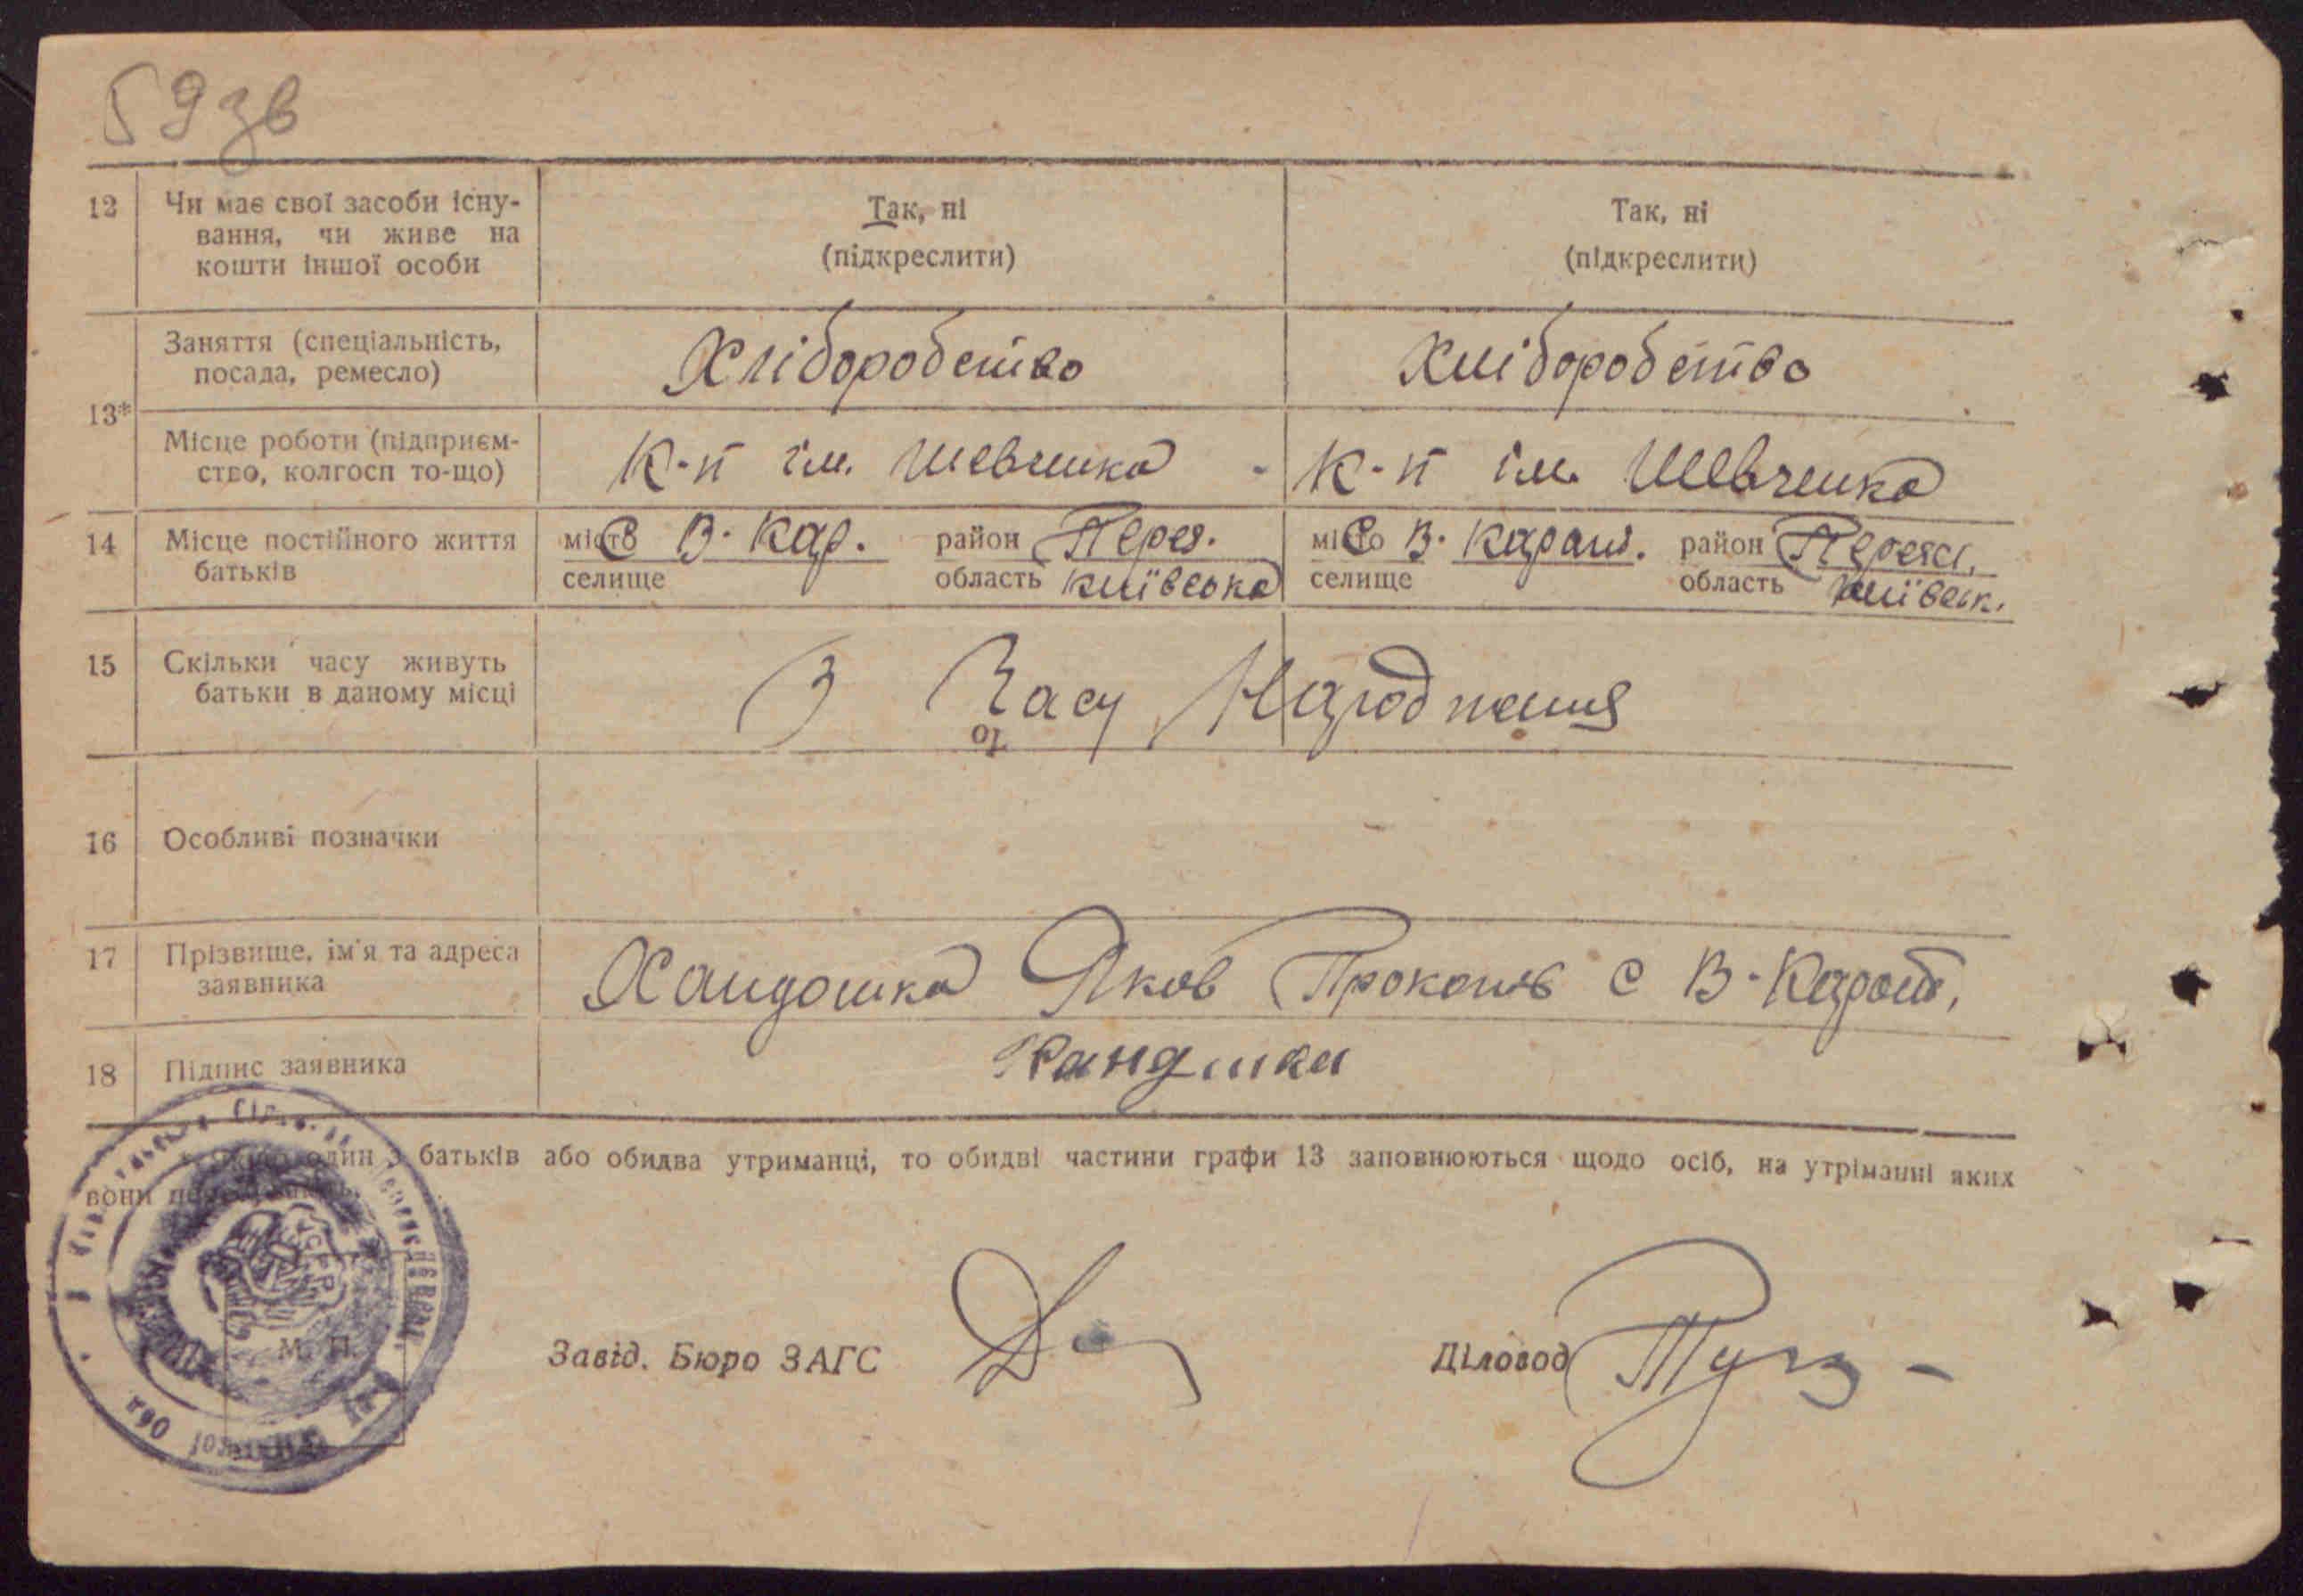 59зв
12 Чи має свої засоби існу- Так, ні Так, ні
вання, чи живе на (підкреслити) (підкреслити)
кошти іншої особи
13*
Заняття (спеціальність, Хліборобство Хліборобство
посада, ремесло)
Місце роботи (підприєм- К-п ім. Шевченка К-п ім. Шевченка
ство, колгосп то-що)
14 Місце постійного життя місто С В. Кар. район Перея. місто С В. Караш. район Переясл.
батьків селище область Київська селище область Київськ.
15 Скільки часу живуть З Часу Народження
батьки в даному місці
16 Особливі позначки
17 Прізвище, ім'я та адреса Хандошка Яков Прокопів с В-Карат.
заявника
18 Підпис заявника
один з батьків або обидва утриманці, то обидві частини графи 13 заповнюються щодо осіб, на утріманні яких
вони
УСРР
М. П.
Завід. Бюро ЗАГС
Діловод